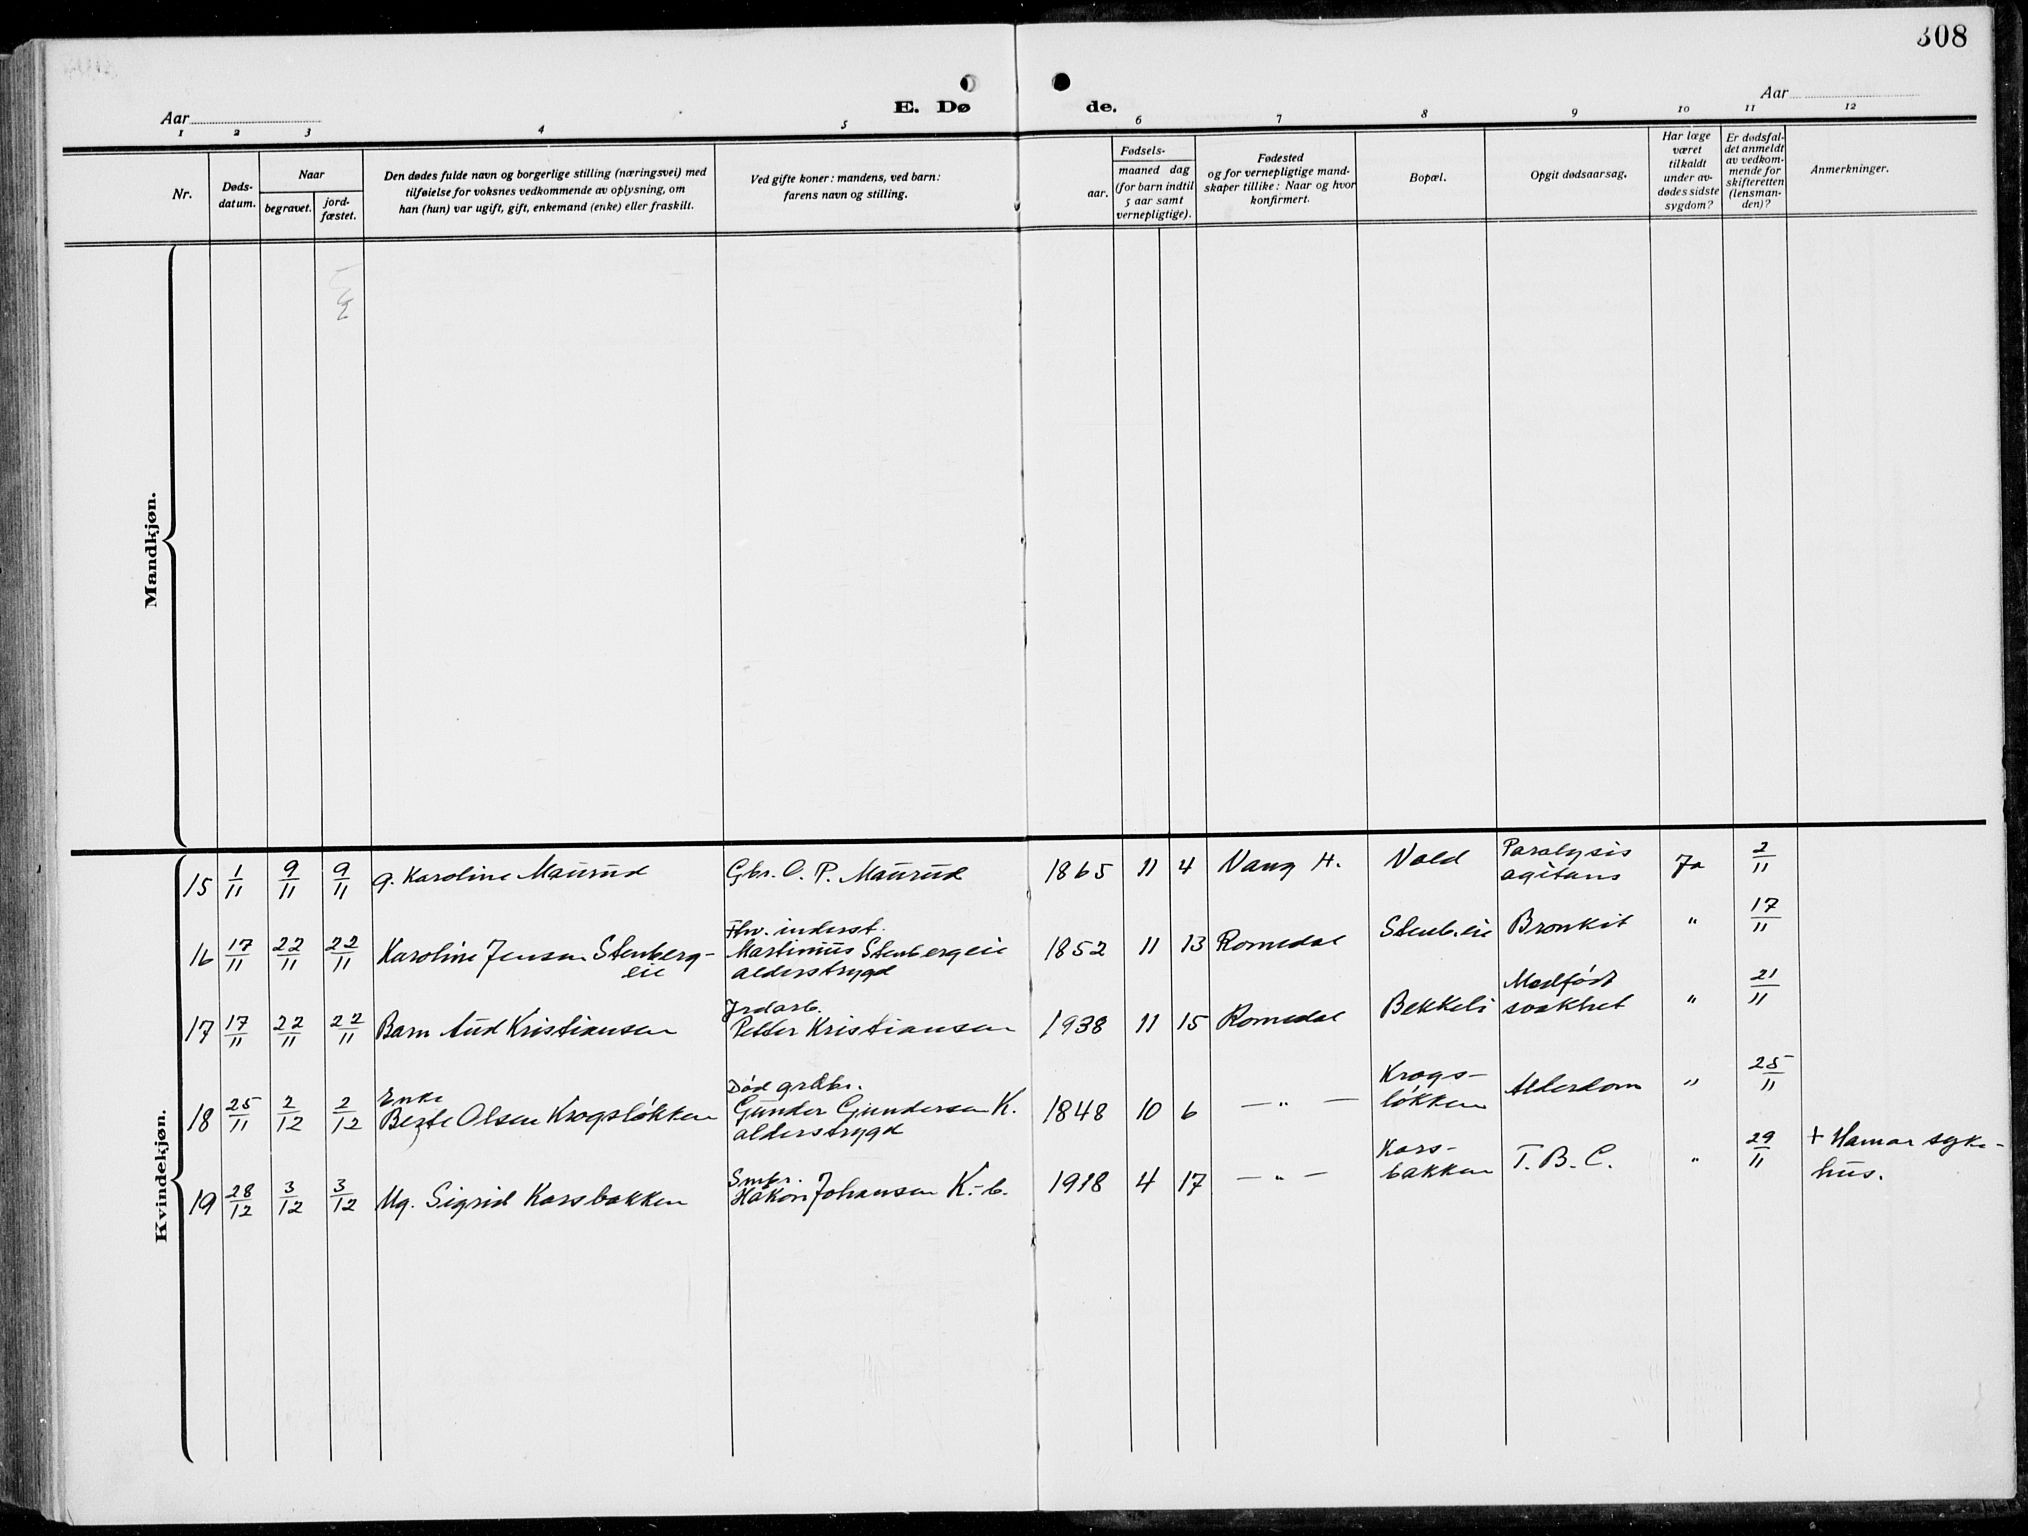 308
E. Døde.
Aar
Aar
1 2 3 4 5 6 7 8 9 10 11 12
Nr.
Døds-
datum.
Naar
begravet.
jord-
fæstet.
Den dødes fulde navn og borgerlige stilling (næringsvei) med
tilføielse for voksnes vedkommende av oplysning, om
han (hun) var ugift, gift, enkemand (enke) eller fraskilt.
Ved gifte koner: mandens, ved barn:
farens navn og stilling.
Fødsels-
aar.
maaned dag
(for barn indtil
5 aar samt
vernepligtige).
Fødested
og for vernepligtige mand-
skaper tillike: Naar og hvor
konfirmert.
Bopæl.
Opgit dødsaarsag.
Har læge
været
tilkaldt
under av-
dødes sidste
sygdom?
Er dødsfal-
det anmeldt
av vedkom-
mende for
skifteretten
(lensman-
den)?
Anmerkninger.
Mandkjøn.
Kvindekjøn.
15 1/11 9/11 9/11 g. Karoline Maurud Gbr. O. P. Maurud 1865 11 4 Vang H. Vold Paralysis
agitans Ja 2/11
16 17/11 22/11 22/11 Karoline Jensen Stenberg-
eie Fhv. inderst.
Martinius Stenbergeie
alderstrygd 1852 11 13 Romedal Stenb.eie Bronkit " 17/11
17 17/11 22/11 22/11 Barn Aud Kristiansen Jrdarb.
Petter Kristiansen 1938 11 15 Romedal Bekkeli Medfødt
svakhet " 21/11
18 25/11 2/12 2/12 Enke
Berte Olsen Krogsløkken Død grdbr.
Gunder Gundersen K.
alderstrygd 1848 10 6 — " — Krogs-
løkken Alderdom " 25/11
19 28/12 3/12 3/12 Ug. Sigrid Korsbakken Smbr.
Håkon Johansen K.-b. 1918 4 17 — " — Kors-
bakken T. B. C. " 29/11 + Hamar syke-
hus.